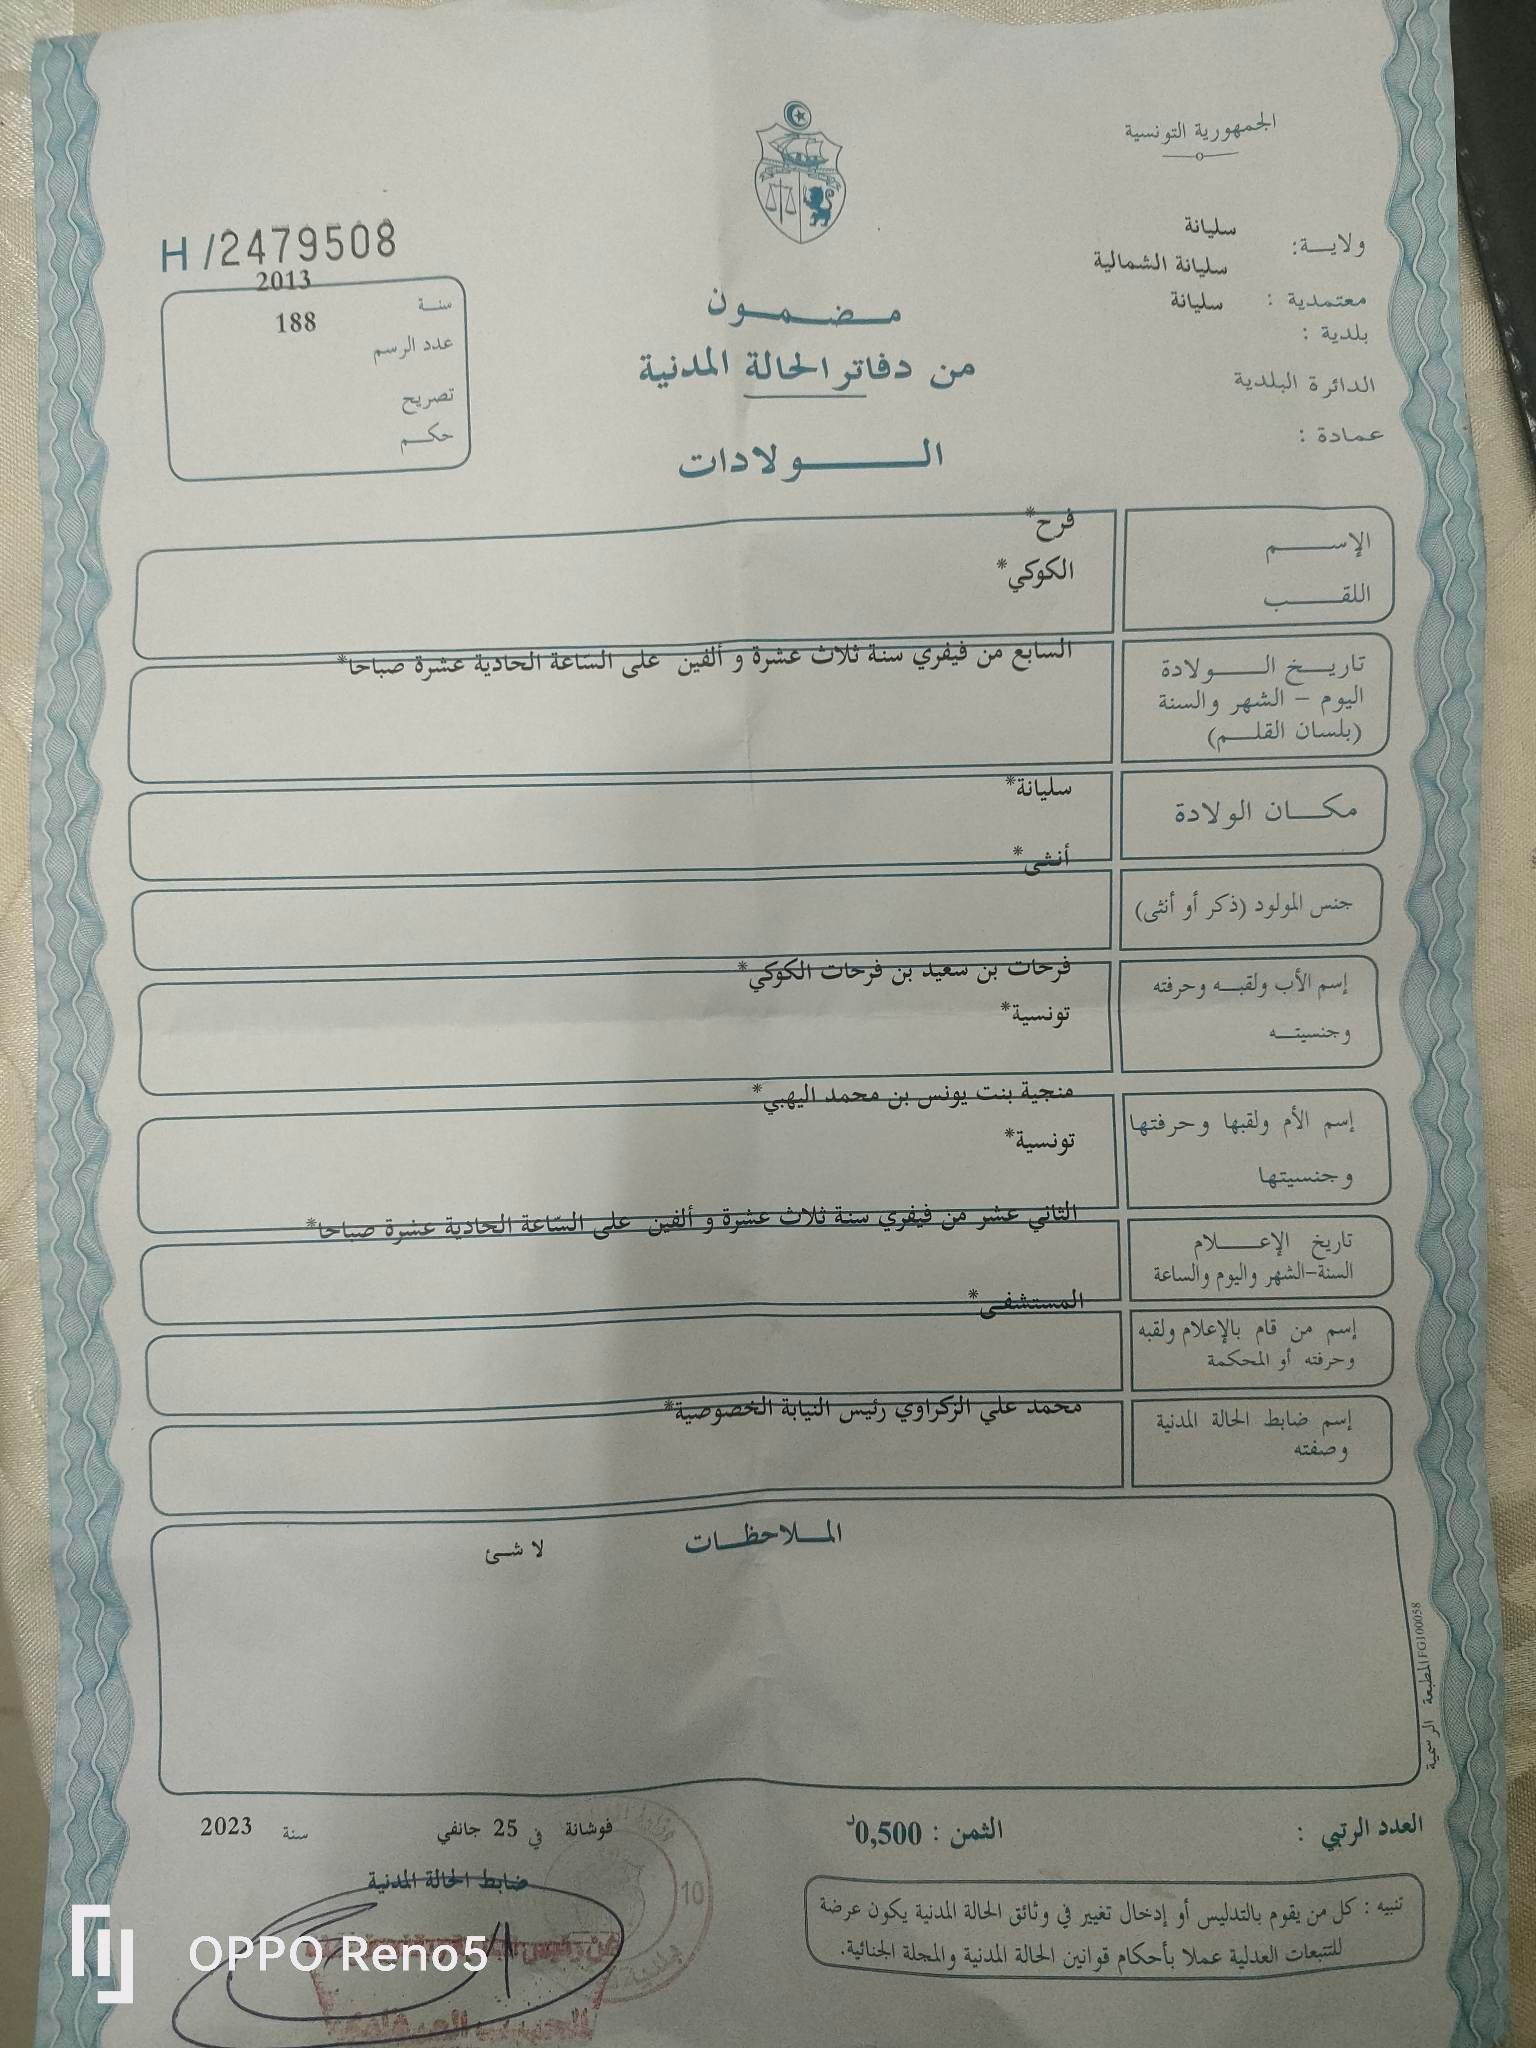 الجمهورية التونسية
ولايـــة: سليانة
سليانة الشمالية
معتمدية : سليانة
بلدية :
الدائرة البلدية
عمادة :
H/2479508
2013
سنة
188
عدد الرسم
تصريح
حكم
مضمون
من دفاتر الحالة المدنية
الولادات
الإسم فرح*
اللقب الكوكي*
تاريخ الولادة السابع من فيفري سنة ثلاث عشرة و ألفين على السّاعة الحادية عشرة صباحا*
اليوم - الشهر والسنة
(بلسان القلم)
مكان الولادة سليانة*
أنثى*
جنس المولود (ذكر أو أنثى)
إسم الأب ولقبه وحرفته فرحات بن سعيد بن فرحات الكوكي*
وجنسيته تونسية*
إسم الأم ولقبها وحرفتها منجية بنت يونس بن محمد اليهبي*
وجنسيتها تونسية*
تاريخ الإعلام الثاني عشر من فيفري سنة ثلاث عشرة و ألفين على السّاعة الحادية عشرة صباحا*
السنة-الشهر واليوم والساعة
المستشفى*
إسم من قام بالإعلام ولقبه
وحرفته أو المحكمة
محمد علي الزكراوي رئيس النيابة الخصوصية*
إسم ضابط الحالة المدنية
وصفته
الملاحظات
لا شئ
المطبعة الرسمية FG100058
العدد الرتبي :
الثمن : 0,500د
فوشانة في 25 جانفي سنة 2023
ضابط الحالة المدنية
10
تنبيه : كل من يقوم بالتدليس أو إدخال تغيير في وثائق الحالة المدنية يكون عرضة
للتتبعات العدلية عملا بأحكام قوانين الحالة المدنية والمجلة الجنائية.
OPPO Reno5